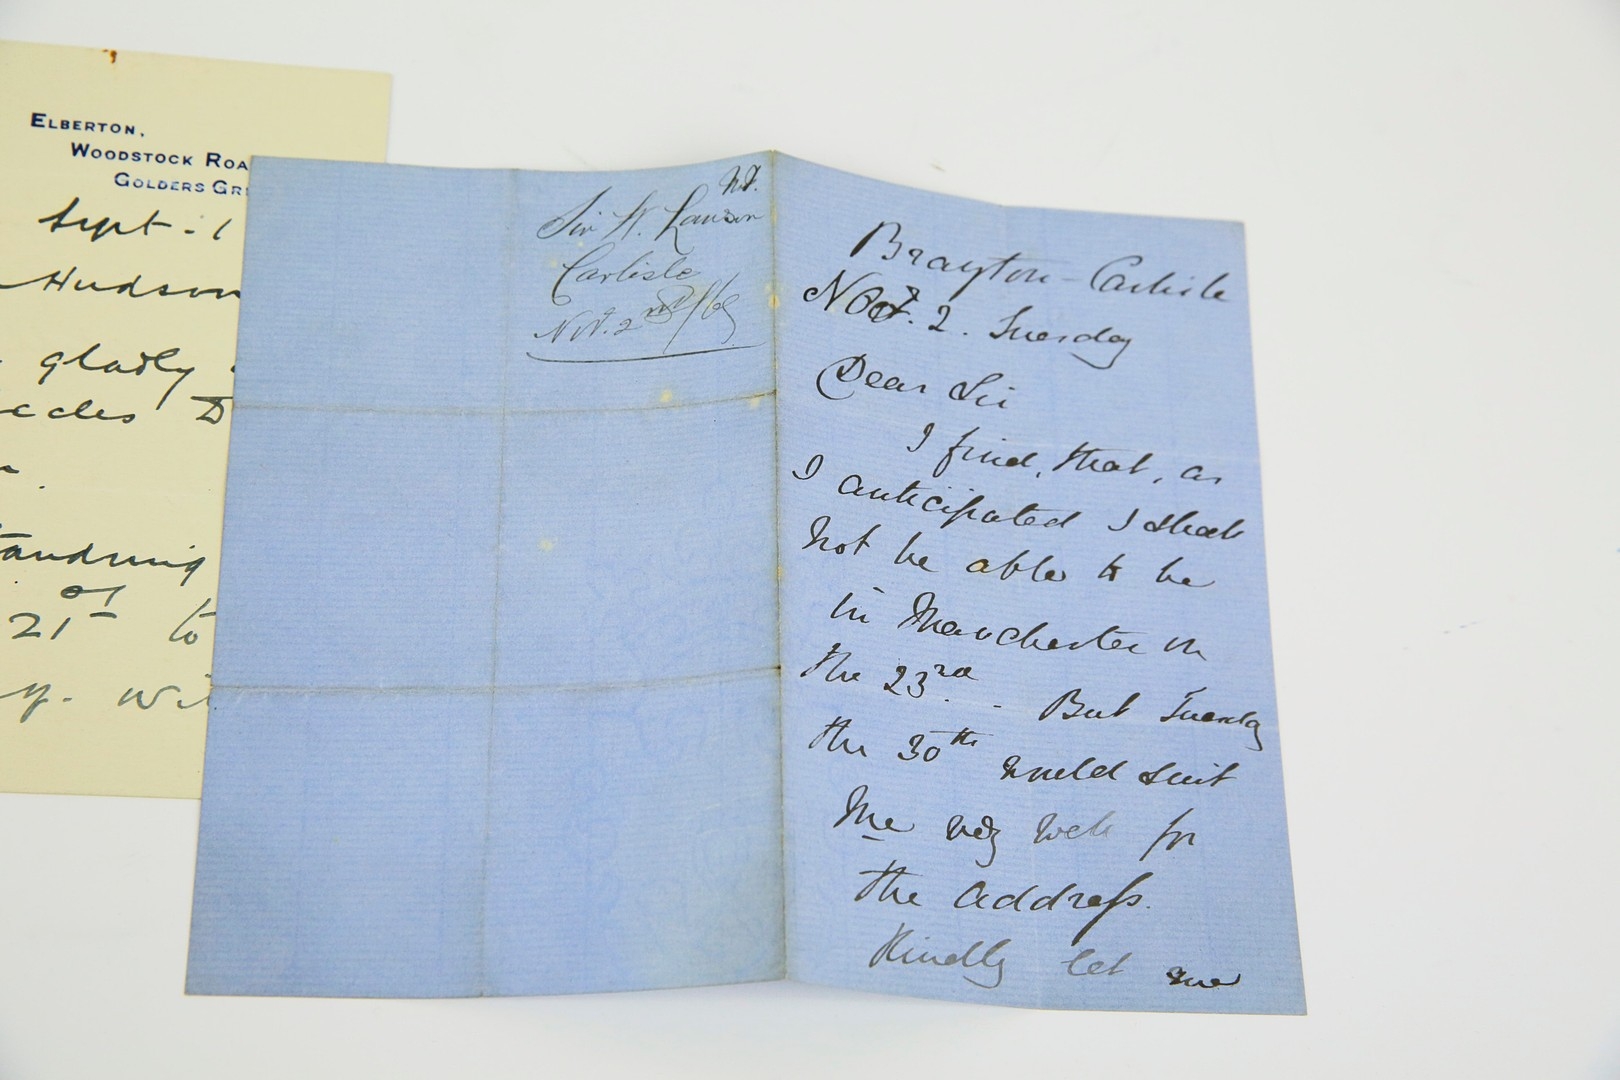 ELBERTON,
WOODSTOCK ROA
GOLDERS GR
Sept. 1
Hudson
gladly
21st to
y. wil
Sir W. Lawson
Carlisle
Nov. 2nd/69
Brayton - Carlisle
Nov. 2. Tuesday
Dear Sir
I find, that, as
I anticipated I shall
not be able to be
in Manchester on
the 23rd. - But Tuesday
the 30th would suit
me very well for
the address.
Kindly let me